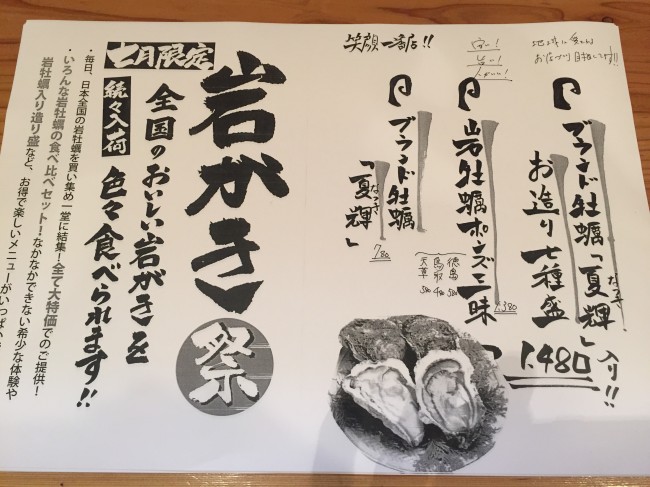 地元に愛される
お店づくり目指してます!!
安い!
旨い!
笑顔一番店!!
ブランド牡蠣「夏輝」入り!!
なつき
お造り七種盛
1,480
岩牡蠣ポンズ三昧
1,380
徳島 580
鳥取 480
天草 380
ブランド牡蠣
「夏輝」
なつき
780
岩がき祭
七月限定
続々入荷
全国のおいしい岩がきを
色々食べられます!!
・毎日、日本全国の岩牡蠣を買い集め一堂に結集!全て大特価でのご提供!
・いろんな岩牡蠣の食べ比べセット!なかなかできない希少な体験や
岩牡蠣入り造り盛など、お得で楽しいメニューがいっぱい